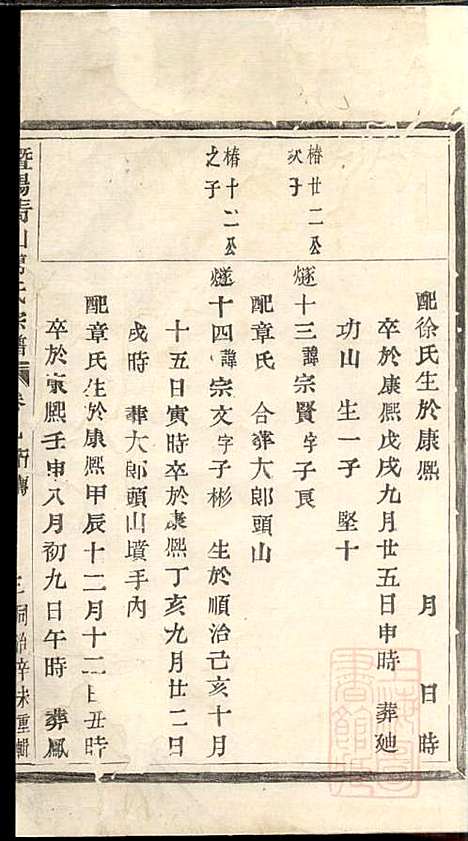 配徐氏生於康熙 月 日 時
卒於康熙戊戌九月廿五日申時 葬廸
功山 生一子 堅十
椿廿二公次子
燧十三諱宗賢字子良
配章氏 合葬大郎頭山
椿十二公之子
燧十四諱宗文字子彬 生於順治己亥十月
十五日寅時卒於康熙丁亥九月廿二日
戌時 葬大郎頭山墳手內
配章氏生於康熙甲辰十二月十二日丑時
卒於康熙壬申八月初九日午時 葬鳳
暨陽 山 氏宗譜 卷 行傳 同治辛未重輯
上海圖書館藏